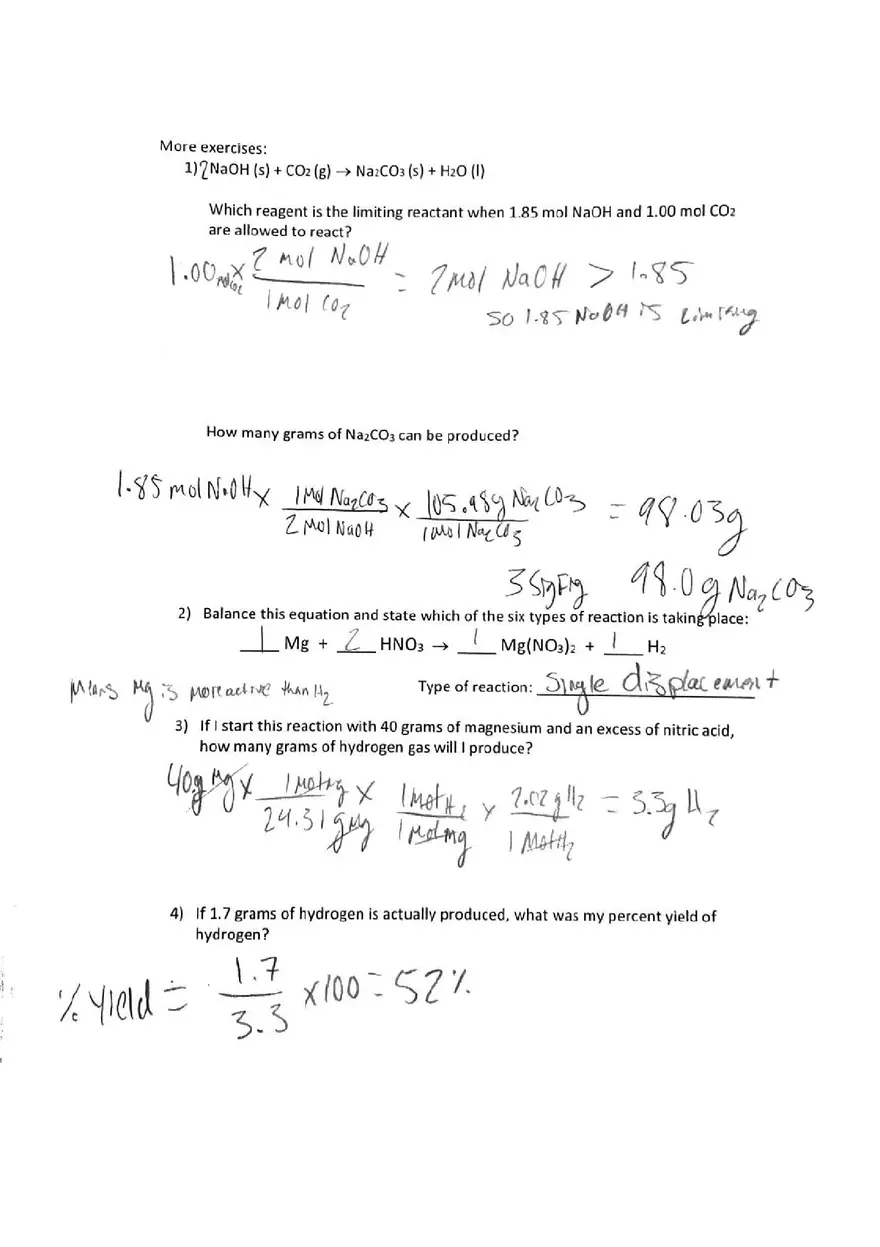 More exercises:
1) 2 NaOH (s) + CO2 (g) → Na2CO3 (s) + H2O (l)
Which reagent is the limiting reactant when 1.85 mol NaOH and 1.00 mol CO2
are allowed to react?
1.00 mol CO2 × 2 mol NaOH / 1 mol CO2 = 2 mol NaOH > 1.85
so 1.85 NaOH is Limiting
How many grams of Na2CO3 can be produced?
1.85 mol NaOH × 1 mol Na2CO3 / 2 mol NaOH × 105.98g Na2CO3 / 1 mol Na2CO3 = 98.03g
3 Sig Fig 98.0 g Na2CO3
2) Balance this equation and state which of the six types of reaction is taking place:
1 Mg + 2 HNO3 → 1 Mg(NO3)2 + 1 H2
Means Mg is more active than H2 Type of reaction: Single displacement
3) If I start this reaction with 40 grams of magnesium and an excess of nitric acid,
how many grams of hydrogen gas will I produce?
40g Mg × 1 mol Mg / 24.31 g Mg × 1 mol H2 / 1 mol Mg × 2.02 g H2 / 1 mol H2 = 3.3g H2
4) If 1.7 grams of hydrogen is actually produced, what was my percent yield of
hydrogen?
% Yield = 1.7 / 3.3 ×100 = 52%